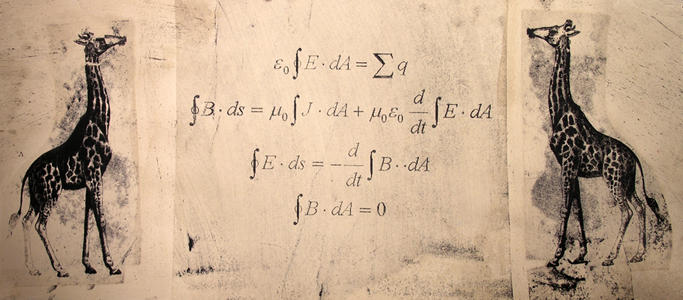 ε₀∮E · dA = ∑q
∮B · ds = μ₀∫J · dA + μ₀ε₀ d/dt ∫E · dA
∮E · ds = − d/dt ∫B · · dA
∮B · dA = 0